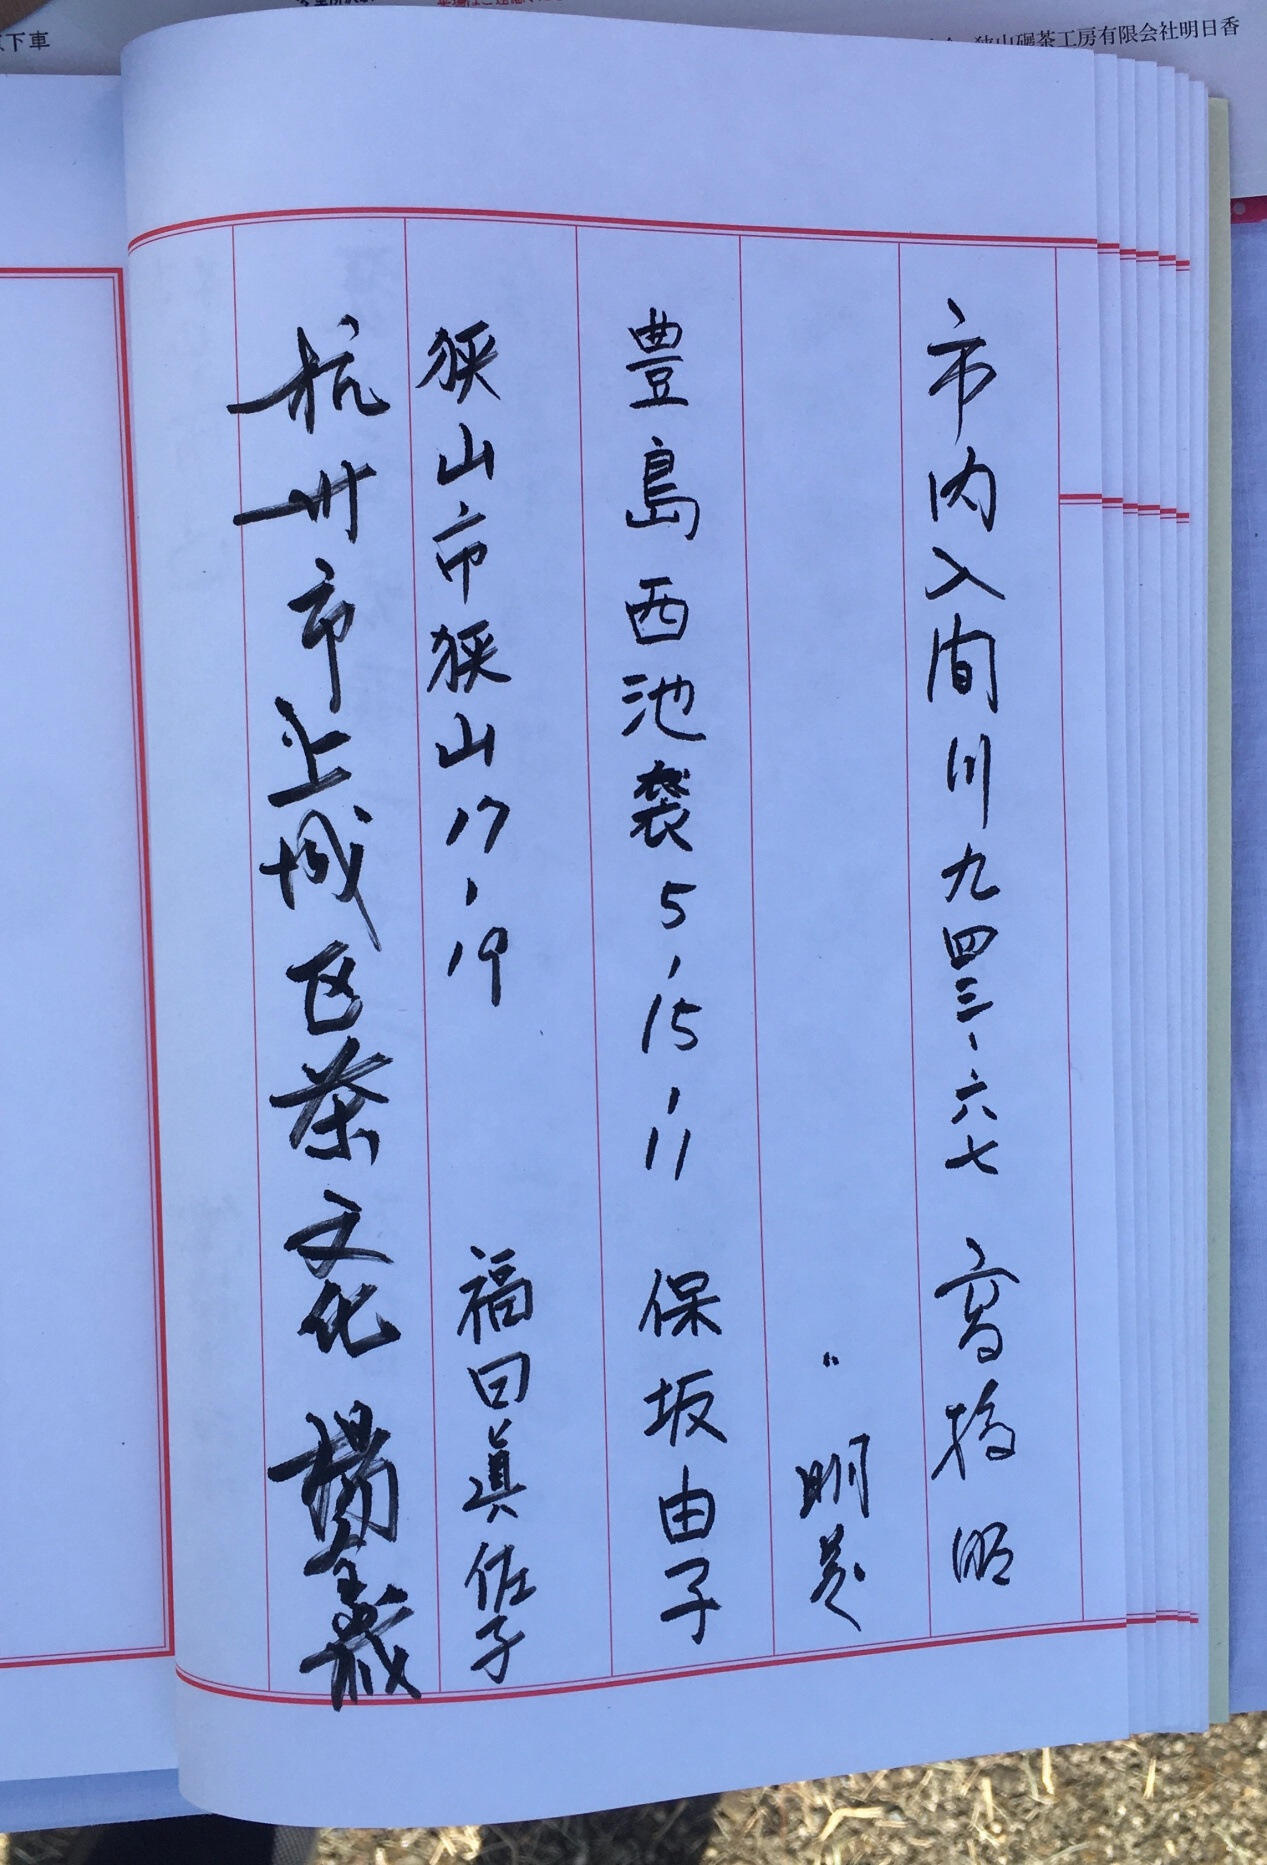 点下車
狭山碾茶工房有限会社明日香
市内入間川九四三、六七 高橋明
〃 明美
豊島西池袋5,15,11 保坂由子
狭山市狭山17,19 福田眞佐子
杭州市上城区茶文化 楊全義